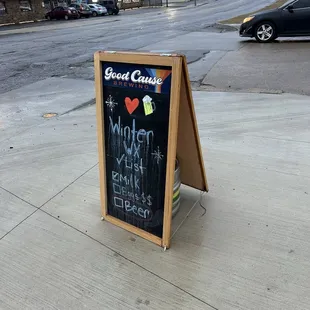 Good Cause
BREWING
Winter
Wx
List
Milk
Eggs $$
Beer